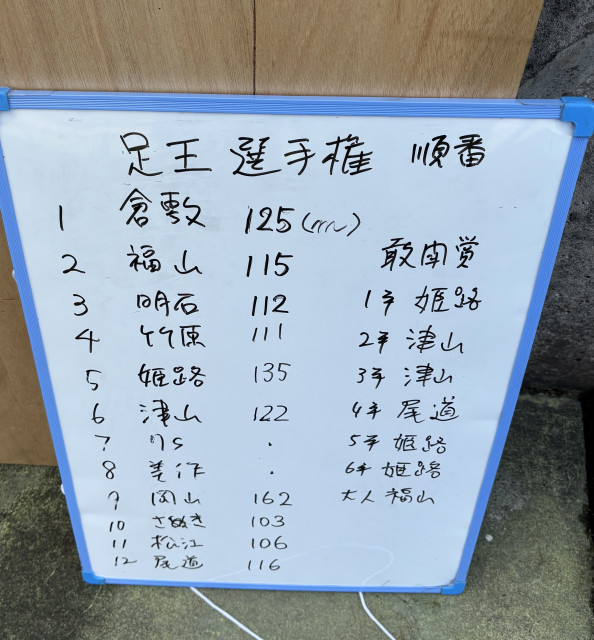 足王 選手権 順番
1 倉敷 125(mm)
2 福山 115
3 明石 112
4 竹原 111
5 姫路 135
6 津山 122
7 りS ・
8 美作 ・
9 岡山 162
10 さぬき 103
11 松江 106
12 尾道 116
敢闘賞
1年 姫路
2年 津山
3年 津山
4年 尾道
5年 姫路
6年 姫路
大人 福山